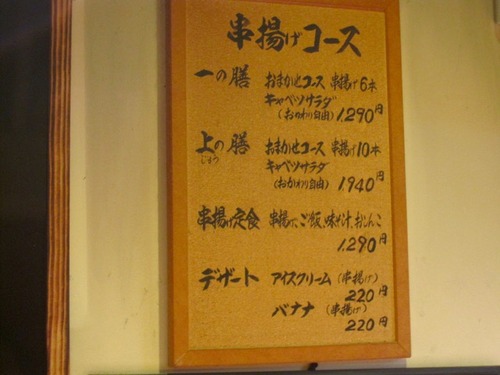 串揚げコース
一の膳 おまかせコース 串揚げ6本
キャベツサラダ
(おかわり自由) 1,290円
上の膳 おまかせコース 串揚げ10本
じょう
キャベツサラダ
(おかわり自由) 1,940円
串揚げ定食 串揚げ、ご飯、味そ汁、おしんこ
1,290円
デザート アイスクリーム(串揚げ)
220円
バナナ(串揚げ)
220円